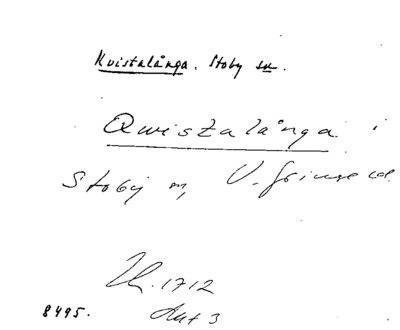 Kvistalånga. Stoby sn.
Qwistalånga i
Stoby sn, V. Göinge hd.
1712
8495.